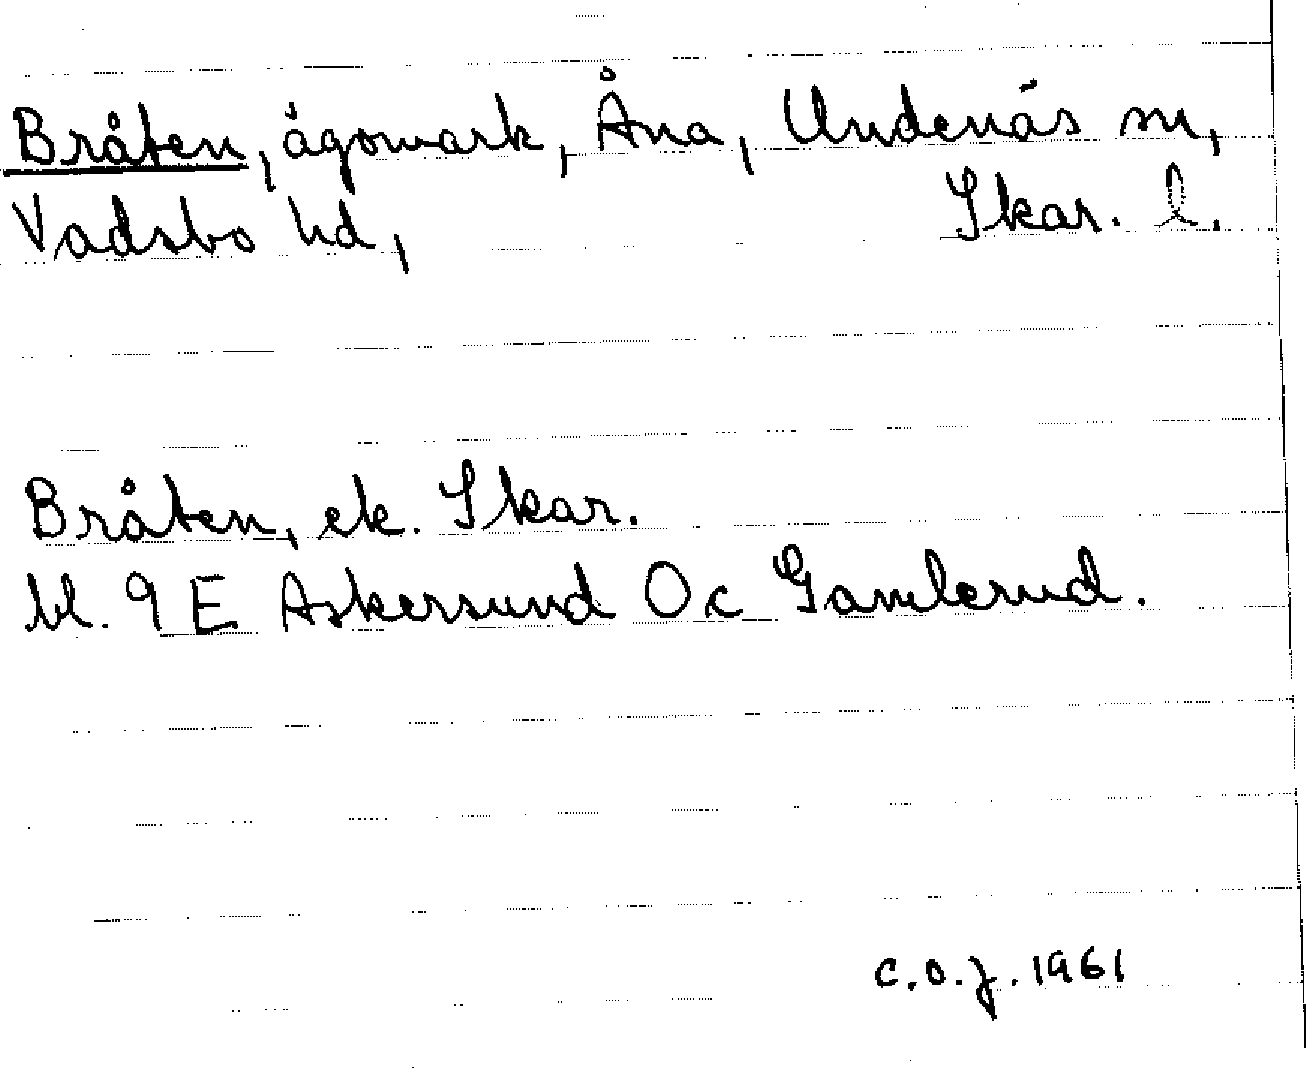 Bråten, ägomark, Åna, Undenäs sn,
Vadsbo hd, Skar. l.
Bråten, ek. Skar.
bl. 9 E Askersund Oc Gamlerud.
C.O.J. 1961